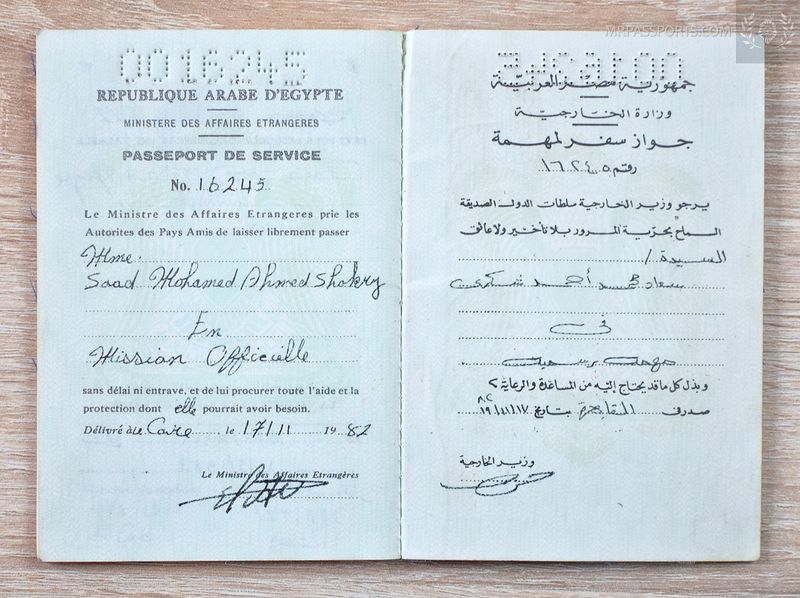 MRPASSPORTS.COM
0016245
REPUBLIQUE ARABE D'EGYPTE
MINISTERE DES AFFAIRES ETRANGERES
PASSEPORT DE SERVICE
No. 16245
Le Ministre des Affaires Etrangeres prie les
Autorites des Pays Amis de laisser librement passer
Mme.
Soad Mohamed Ahmed Shokry
En
Mission Officielle
sans délai ni entrave, et de lui procurer toute l'aide et la
protection dont elle pourrait avoir besoin.
Délivré à Le Caire le 17/11 1982
Le Ministre des Affaires Etrangères
0016245
جمهورية مصر العربية
وزارة الخارجية
جواز سفر لمهمة
رقم ١٦٢٤٥
يرجو وزير الخارجية سلطات الدول الصديقة
السماح بحرية المرور بلا تأخير ولا عائق
السيدة /
سعاد محمد أحمد شكرى
فى
مهمة رسمية
وبذل كل ما قد يحتاج إليه من المساعدة والرعاية
صدر فى القاهرة بتاريخ ١٩٨٢/١١/١٧
وزير الخارجية